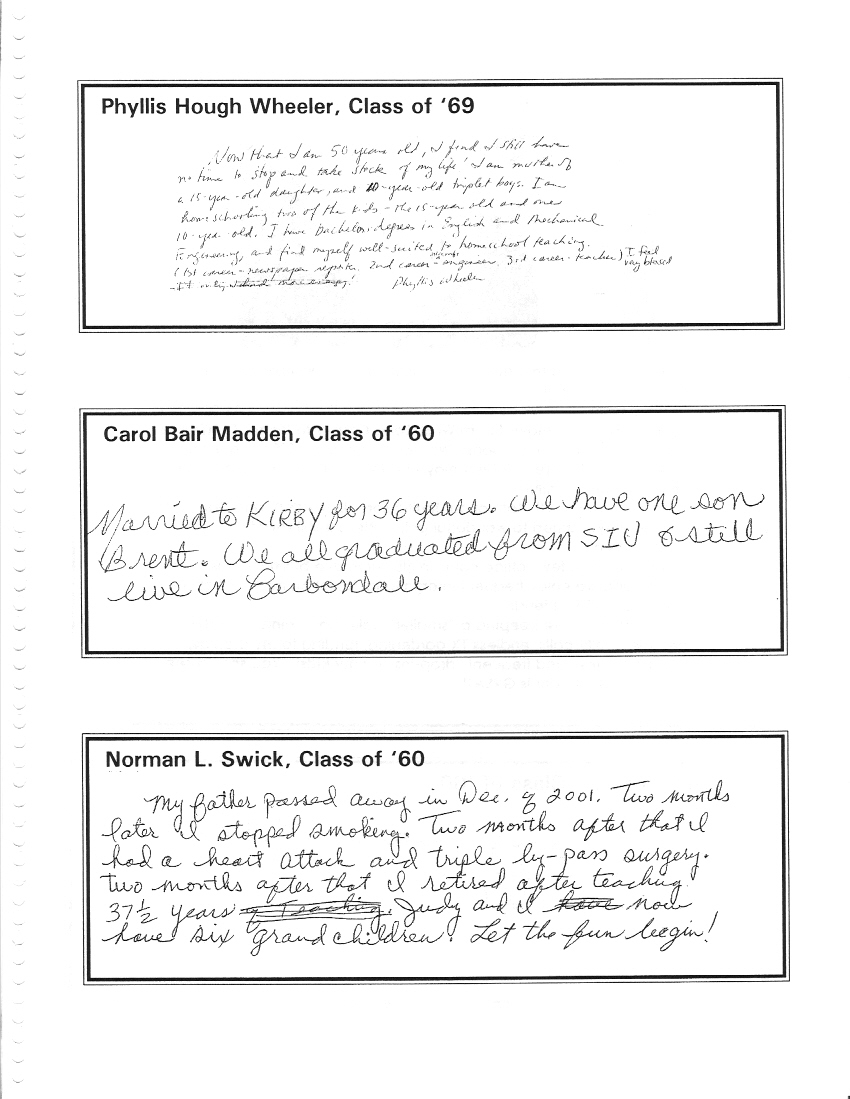 Phyllis Hough Wheeler, Class of '69
Now that I am 50 years old, I find I still have
no time to stop and take stock of my life! I am mother of
a 15-year-old daughter, and 10-year-old triplet boys. I am
homeschooling two of the kids - the 15-year old and one
10-year-old. I have bachelor degrees in English and Mechanical
Engineering, and find myself well-suited to homeschool teaching.
(1st career - newspaper reporter, 2nd career - engineer, 3rd career - teacher) I feel
very blessed
Phyllis Wheeler
Carol Bair Madden, Class of '60
Married to KIRBY for 36 years. We have one son
Brent. We all graduated from SIU & still
live in Carbondale.
Norman L. Swick, Class of '60
My father passed away in Dec. of 2001. Two months
later I stopped smoking. Two months after that I
had a heart attack and triple by-pass surgery.
Two months after that I retired after teaching
37½ years of Teaching. Judy and I have now
have six grandchildren! Let the fun begin!